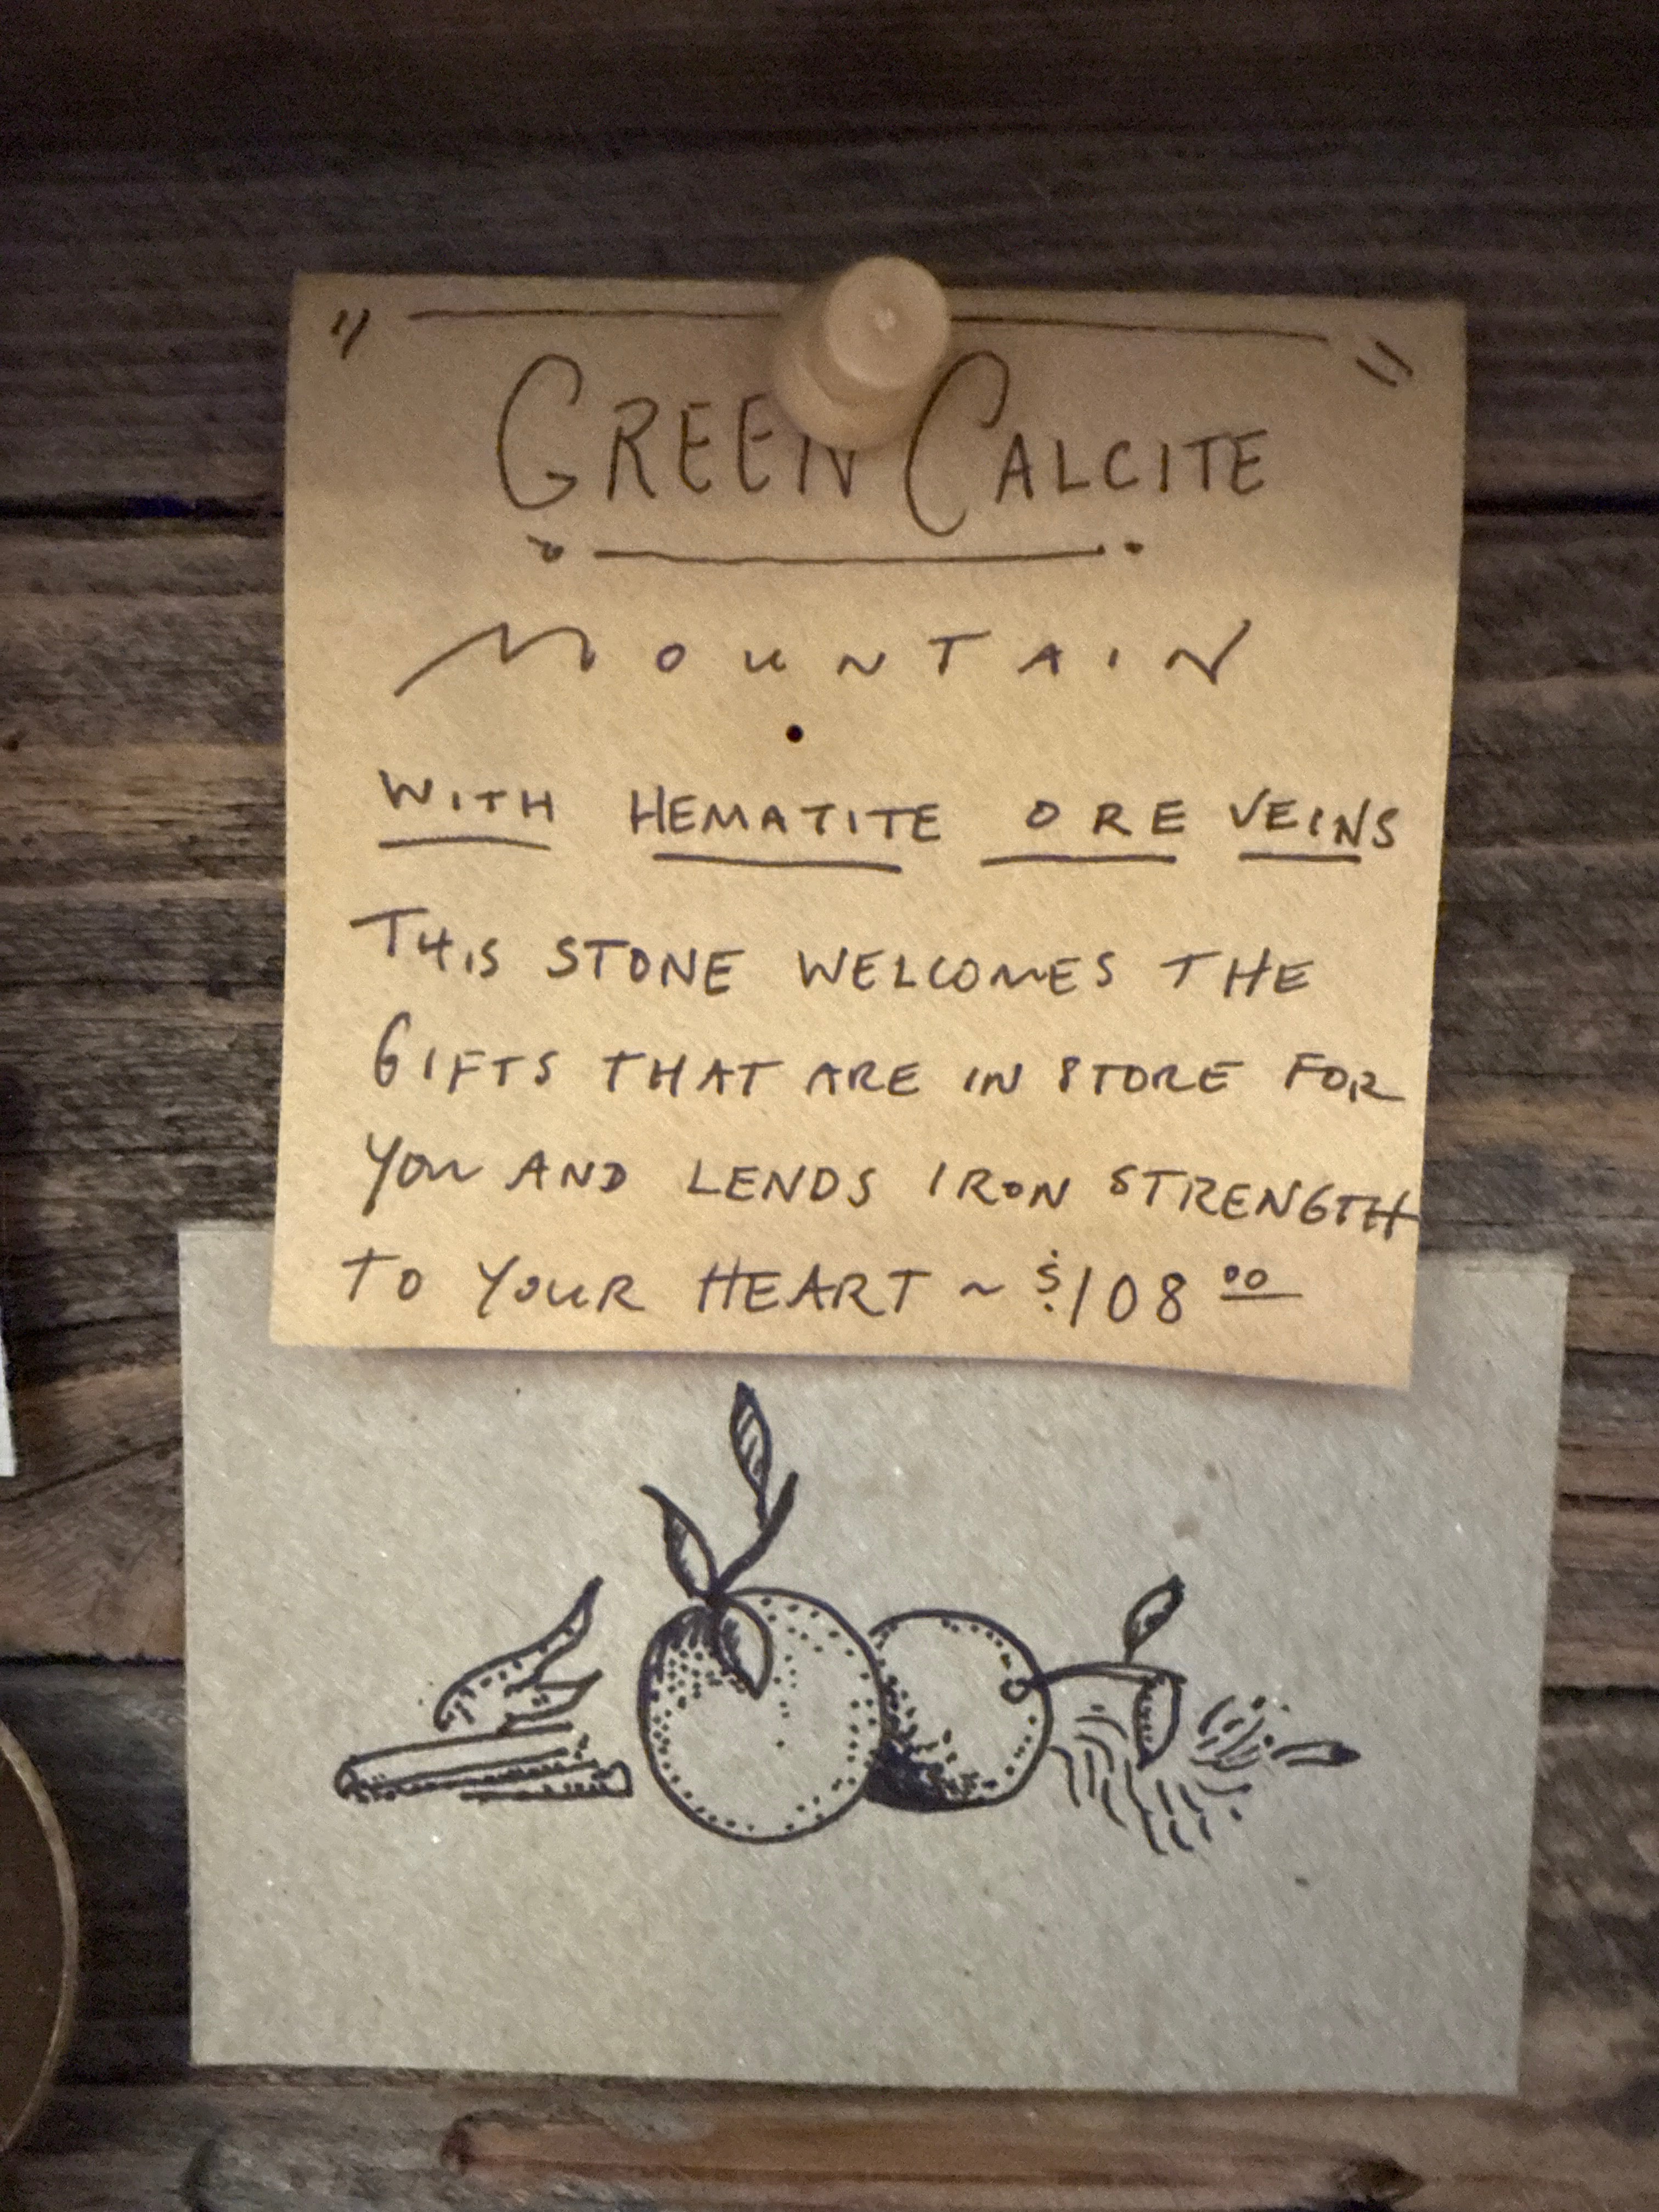 GREEN CALCITE
MOUNTAIN
WITH HEMATITE ORE VEINS
THIS STONE WELCOMES THE
GIFTS THAT ARE IN STORE FOR
YOU AND LENDS IRON STRENGTH
TO YOUR HEART ~ $108.00